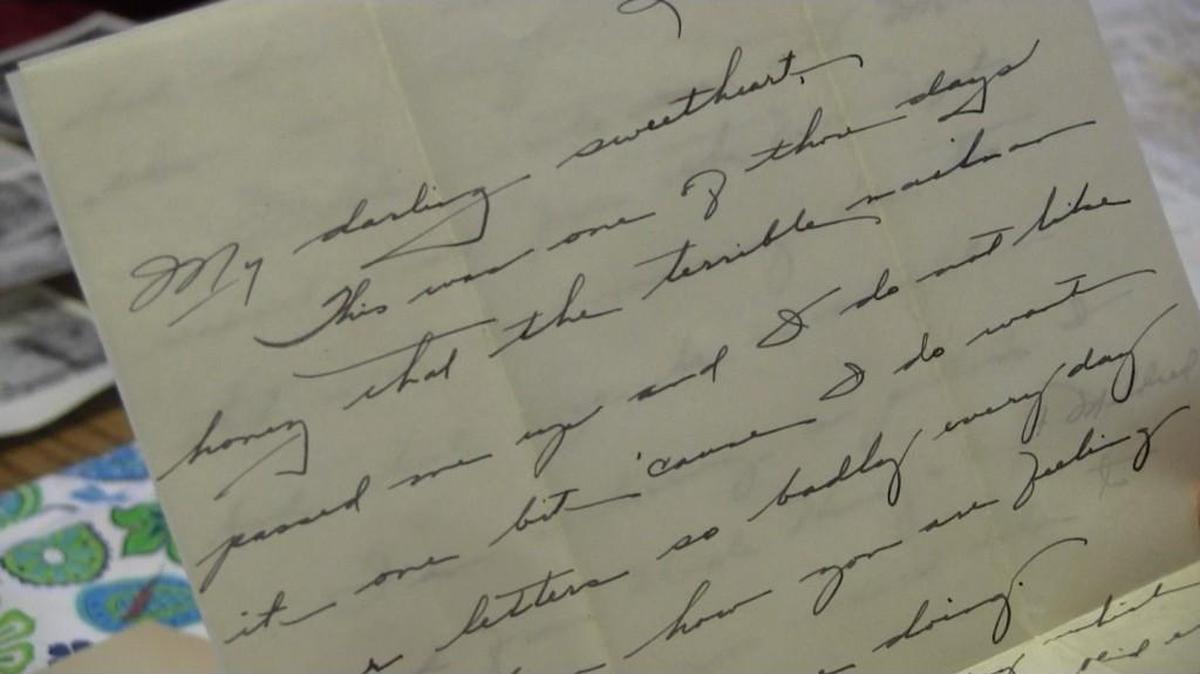 My darling sweetheart,
This was one of those days
honey that the terrible mailman
passed me up and I do not like
it one bit 'cause I do want
letters so badly every day
how you are feeling
doing.